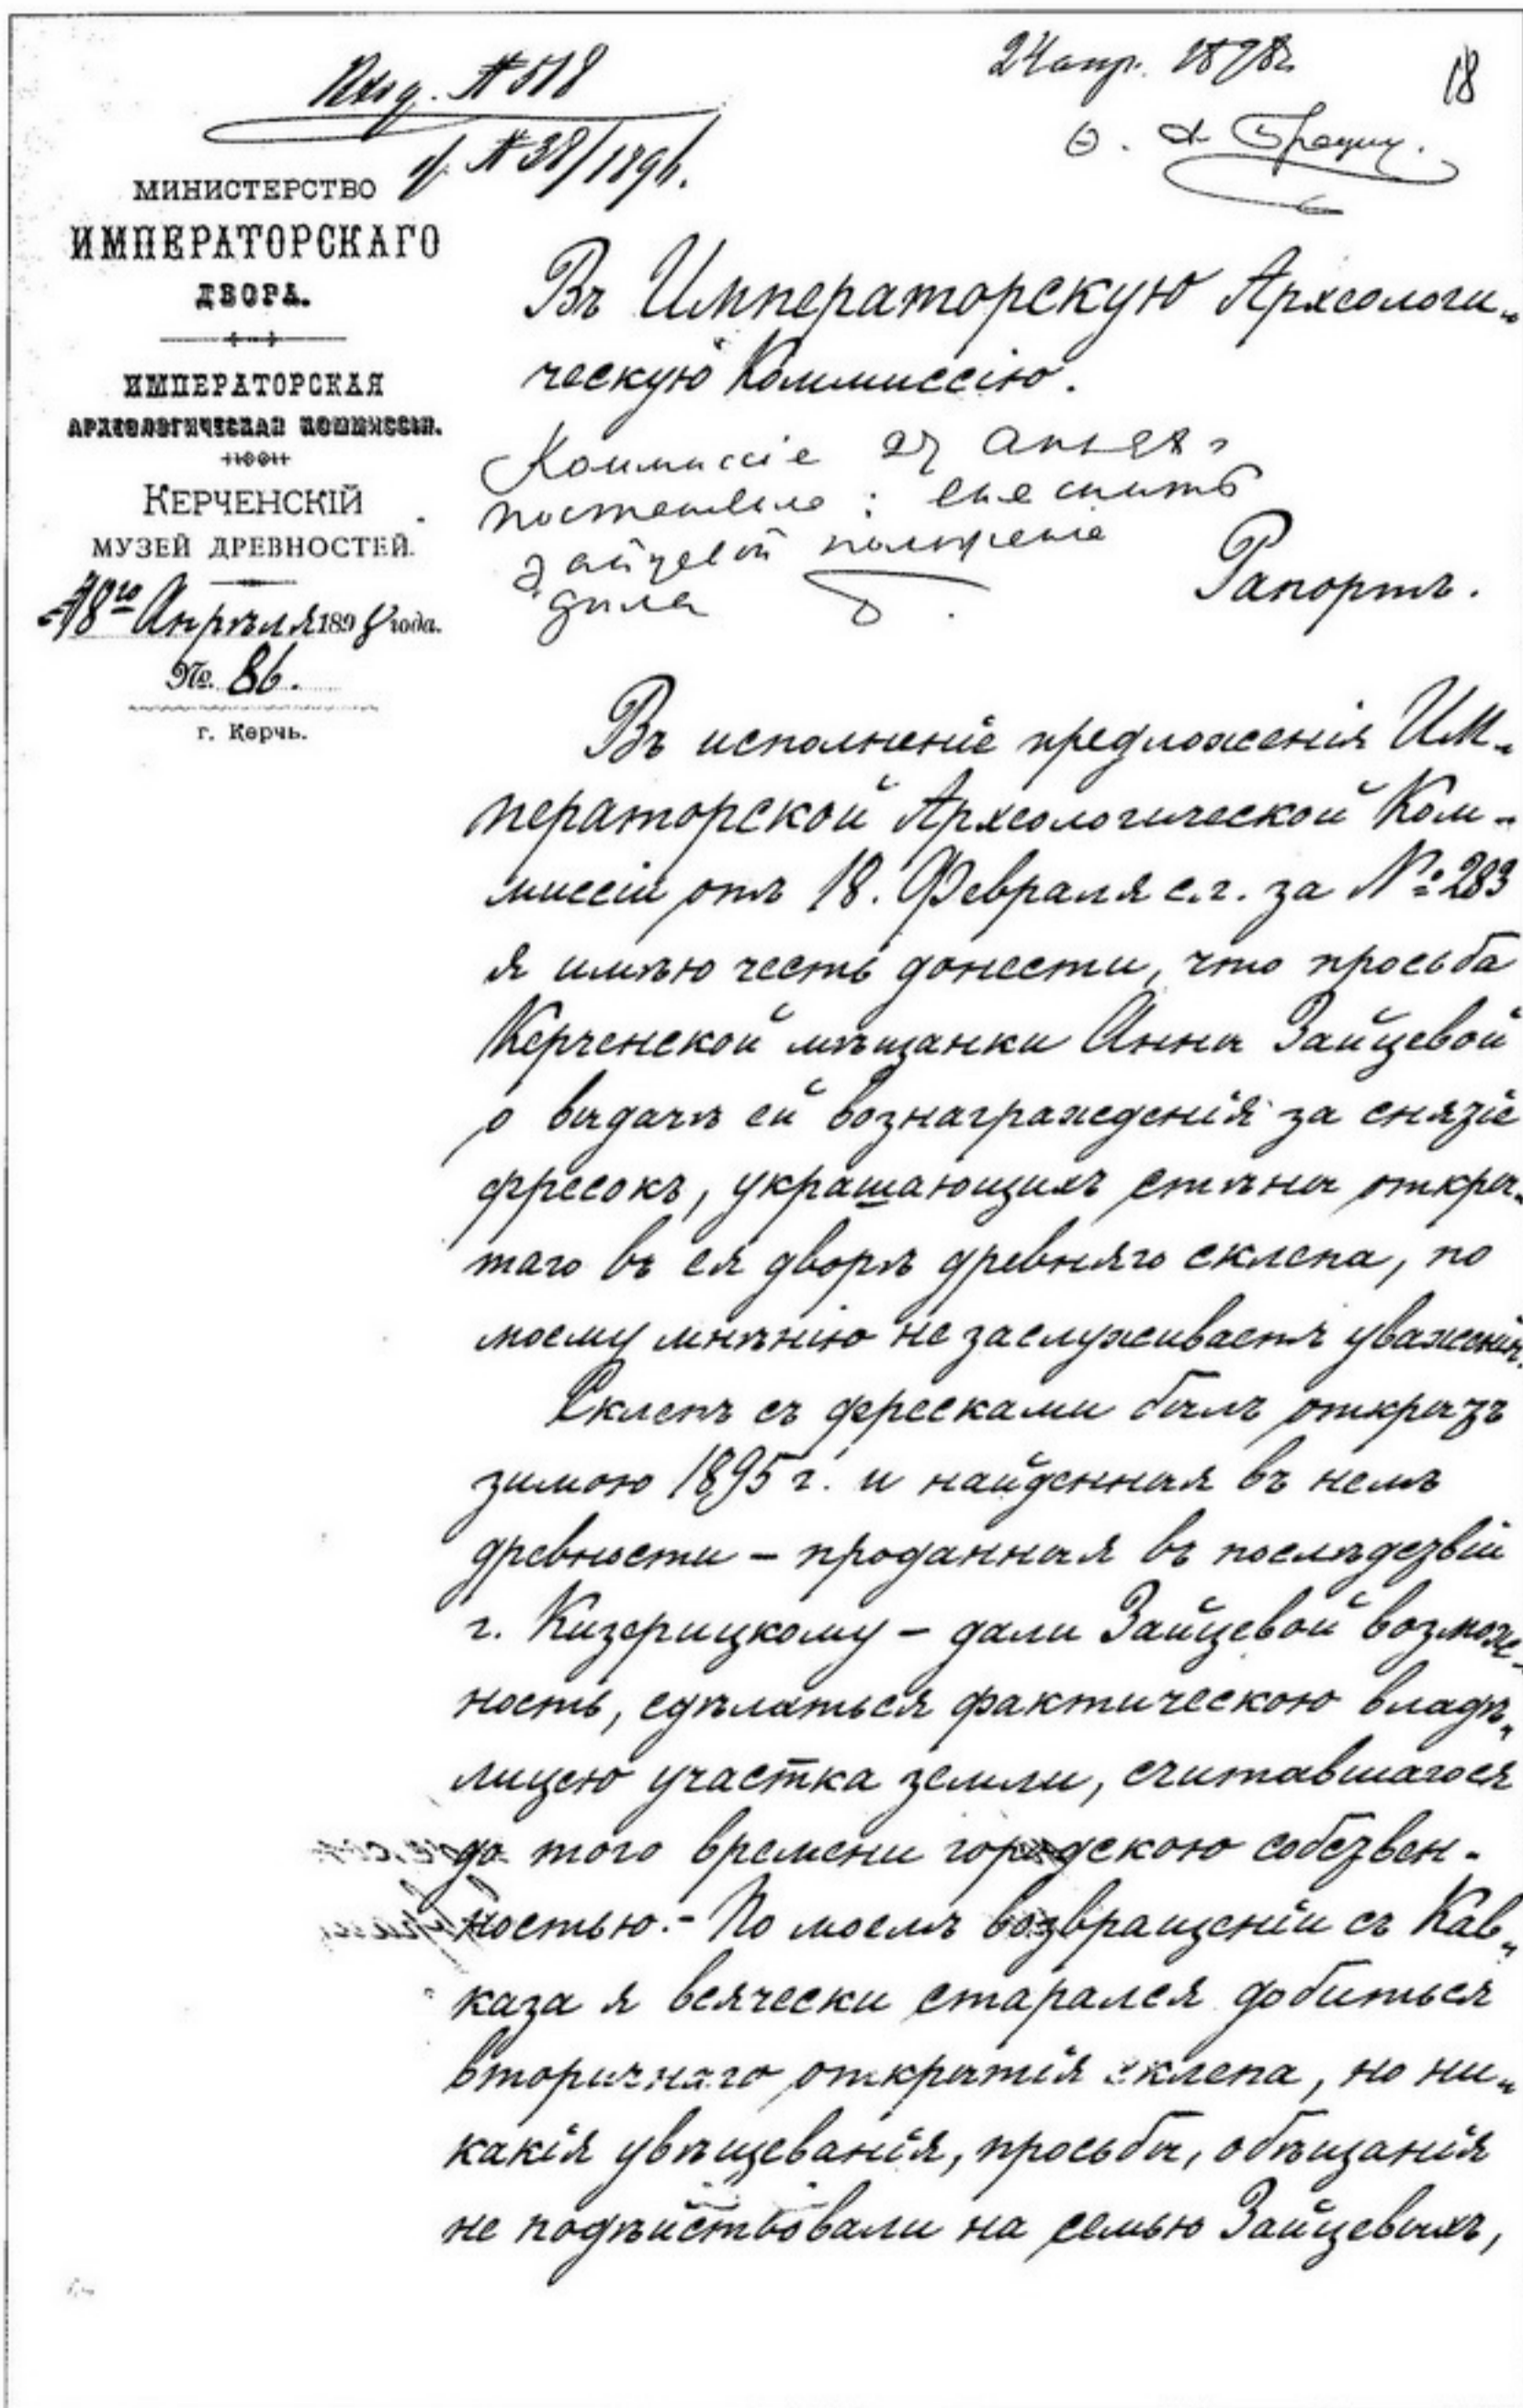 Вход. № 518
24 апр. 1898 г.
18
д. № 38/1896.
МИНИСТЕРСТВО
ИМПЕРАТОРСКАГО
ДВОРА.
ИМПЕРАТОРСКАЯ
АРХЕОЛОГИЧЕСКАЯ КОММИССІЯ.
КЕРЧЕНСКІЙ
МУЗЕЙ ДРЕВНОСТЕЙ.
18го Апрѣля 1898 года.
№. 86.
г. Керчь.
Въ Императорскую Археологи-
ческую Коммиссію.
Коммиссіе
:
Зайцевой
дѣла
Рапортъ.
Въ исполненіе предложенія ИМ-
ператорской Археологической Ком-
миссіи отъ 18. Февраля с.г. за № 283
я имѣю честь донести, что просьба
Керченской мѣщанки Анны Зайцевой
о выдачѣ ей вознагражденія за снятіе
фресокъ, украшающихъ стѣны откры-
таго въ ея дворѣ древняго склепа, по
моему мнѣнію не заслуживаетъ уваженія.
Склепъ съ фресками былъ открытъ
зимою 1895 г. и найденныя въ немъ
древности – проданныя въ послѣдствіи
г. Кизерицкому – дали Зайцевой возмож-
ность, сдѣлаться фактическою владѣ-
лицею участка земли, считавшагося
до того времени городскою собствен-
ностью. - По моемъ возвращеніи съ Кав-
каза я всячески старался добиться
вторичнаго открытія склепа, но ни-
какія увѣщеванія, просьбы, обѣщанія
не подѣйствовали на семью Зайцевыхъ,